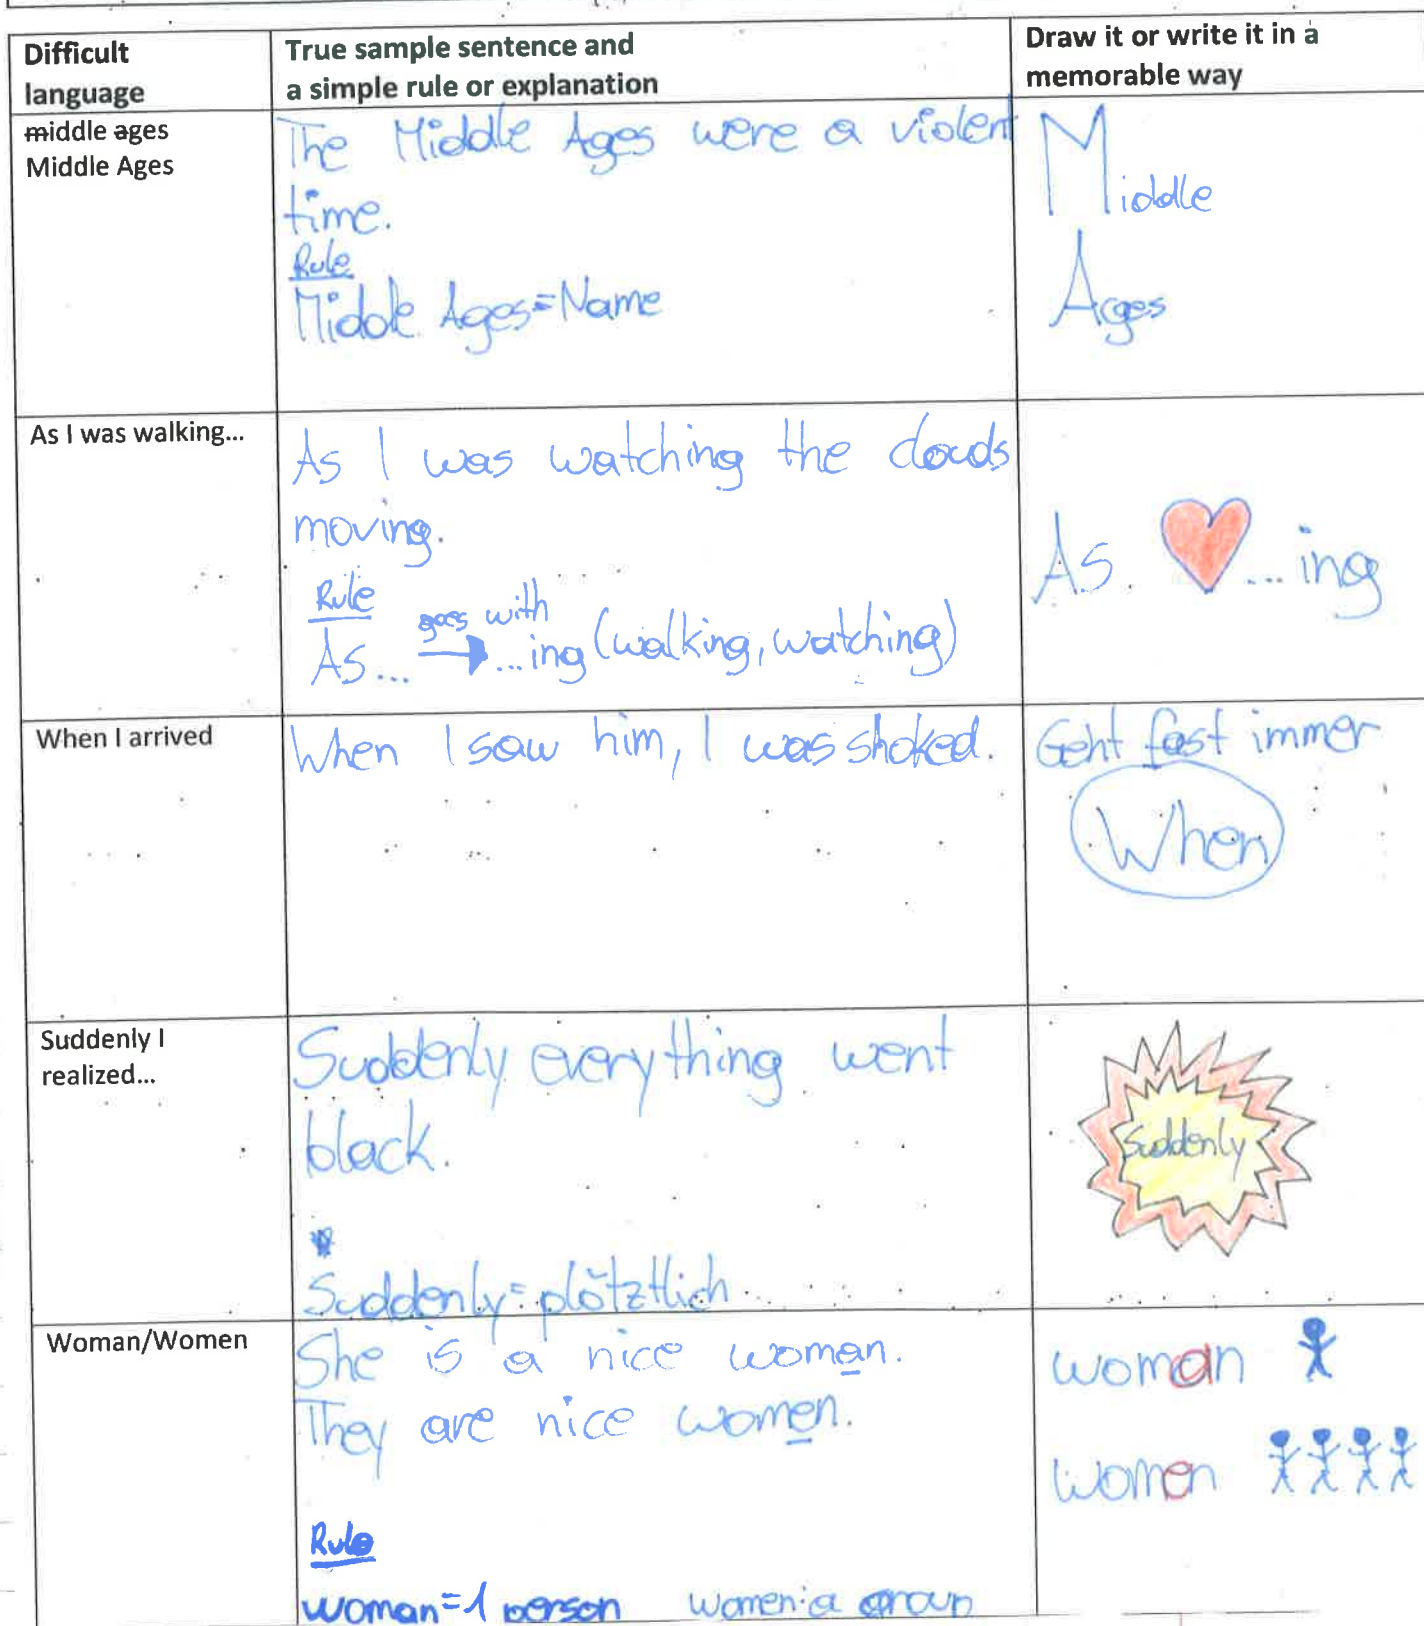 Difficult
language
True sample sentence and
a simple rule or explanation
Draw it or write it in a
memorable way
middle ages
Middle Ages
The Middle Ages were a violent
time.
Rule
Middle Ages=Name
Middle
Ages
As I was walking...
As I was watching the clouds
moving.
Rule
As... goes with ...ing (walking, watching)
As. ... ing
When I arrived
When I saw him, I was shoked.
Geht fast immer
When
Suddenly I
realized...
Suddenly everything went
black.
Suddenly=plötztlich
Suddenly
Woman/Women
She is a nice woman.
They are nice women.
Rule
woman=1 person women:a group
woman
women